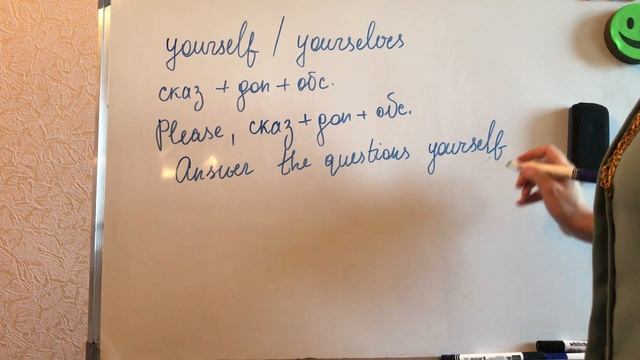 yourself / yourselves
сказ + доп + обс.
Please, сказ + доп + обс.
Answer the questions yourself